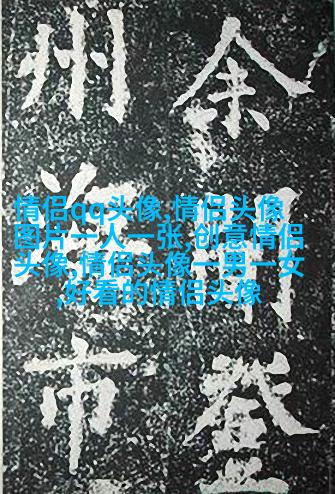 余登
州市
情侣qq头像,情侣头像
图片一人一张,创意情侣
头像,情侣头像一男一女
,好看的情侣头像